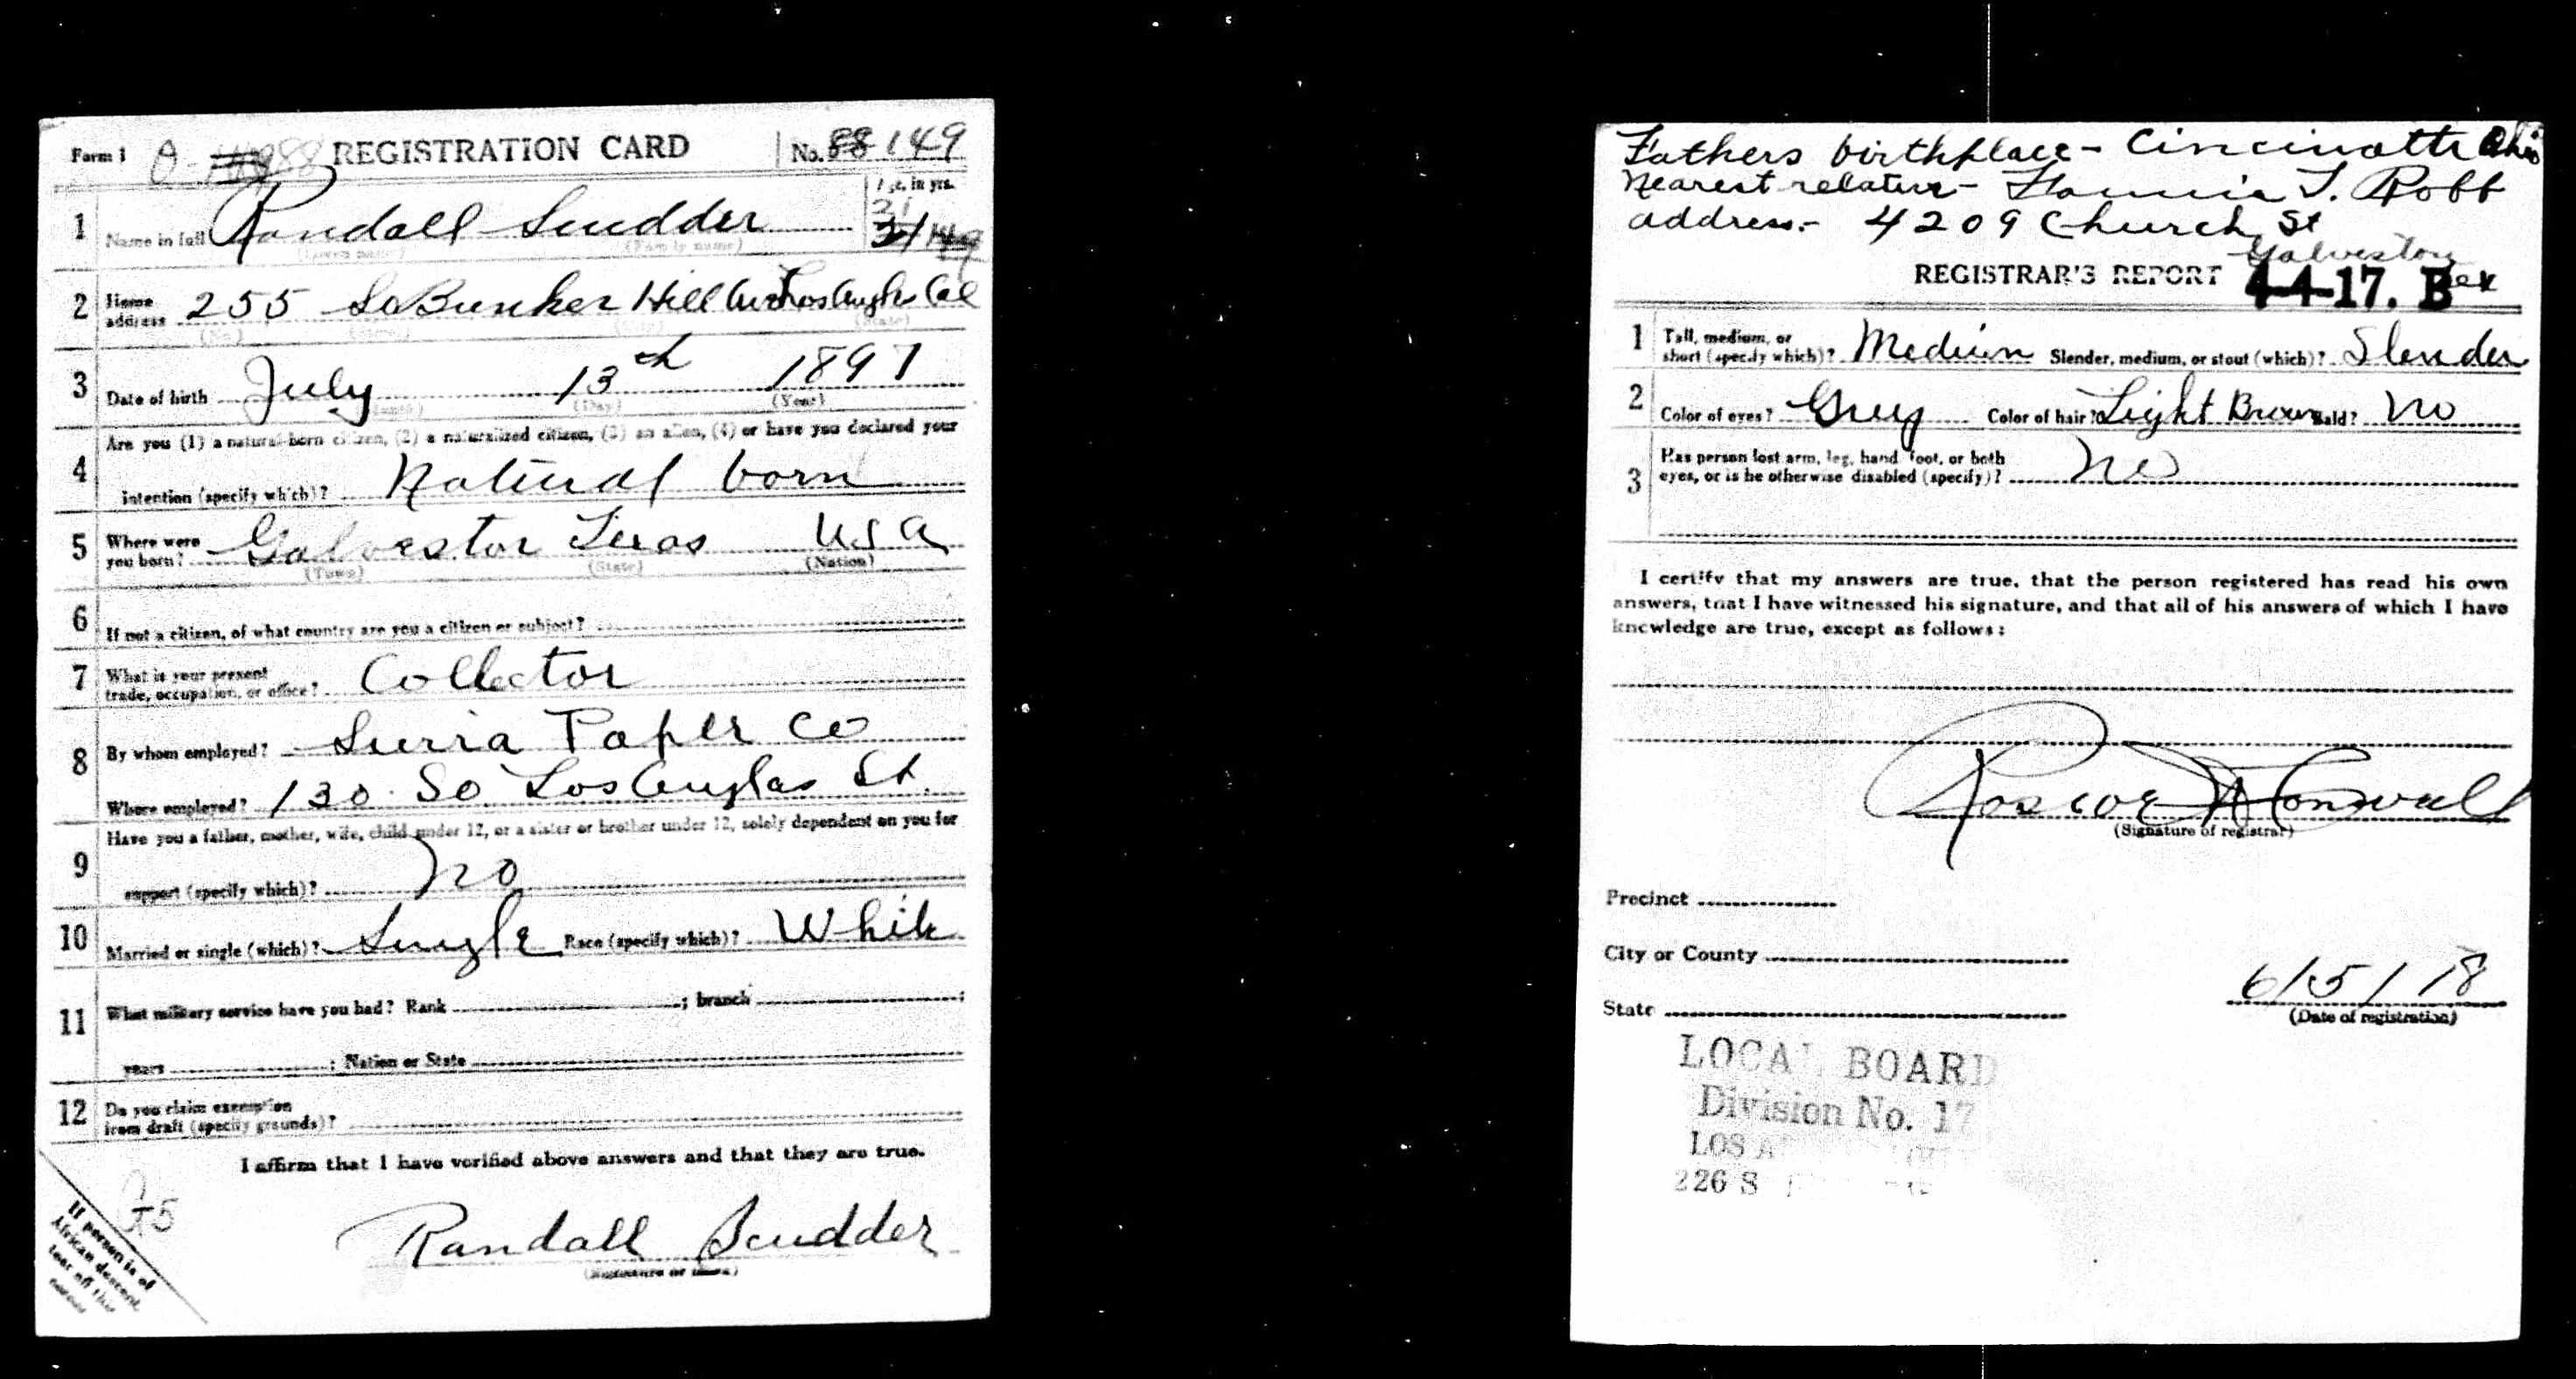 Form 1 REGISTRATION CARD No. 88 149
1 Name in full Randall Scudder Age, in yrs. 21
(Given name) (Family name)
2 Home address 255 So Bunker Hill Ave Los Angles Cal
(No.) (Street) (City) (State)
3 Date of birth July 13th 1897
(Month) (Day) (Year)
Are you (1) a natural-born citizen, (2) a naturalized citizen, (3) an alien, (4) or have you declared your
4 intention (specify which)? Natural born
5 Where were you born? Galveston Texas USA
(Town) (State) (Nation)
6 If not a citizen, of what country are you a citizen or subject?
7 What is your present trade, occupation, or office? Collector
8 By whom employed? Sierra Paper Co
Where employed? 130 So Los Angles St.
Have you a father, mother, wife, child under 12, or a sister or brother under 12, solely dependent on you for
9 support (specify which)? no
10 Married or single (which)? Single Race (specify which)? White
11 What military service have you had? Rank ; branch ;
years ; Nation or State
12 Do you claim exemption from draft (specify grounds)?
I affirm that I have verified above answers and that they are true.
Randall Scudder
(Signature or mark)
If person is of
African descent,
tear off this
corner
Fathers birthplace - Cincinatti Ohio
Nearest relative - T. Robb
address - 4209 Church St
Galveston
REGISTRAR'S REPORT 4-4-17. B Tex
1 Tall, medium, or short (specify which)? Medium Slender, medium, or stout (which)? Slender
2 Color of eyes? Grey Color of hair? Light Brown Bald? No
3 Has person lost arm, leg, hand, foot, or both eyes, or is he otherwise disabled (specify)? no
I certify that my answers are true, that the person registered has read his own
answers, that I have witnessed his signature, and that all of his answers of which I have
knowledge are true, except as follows:
Roscoe
(Signature of registrar)
Precinct
City or County
State
6/5/18
(Date of registration)
LOCAL BOARD
Division No. 17
LOS
226 S